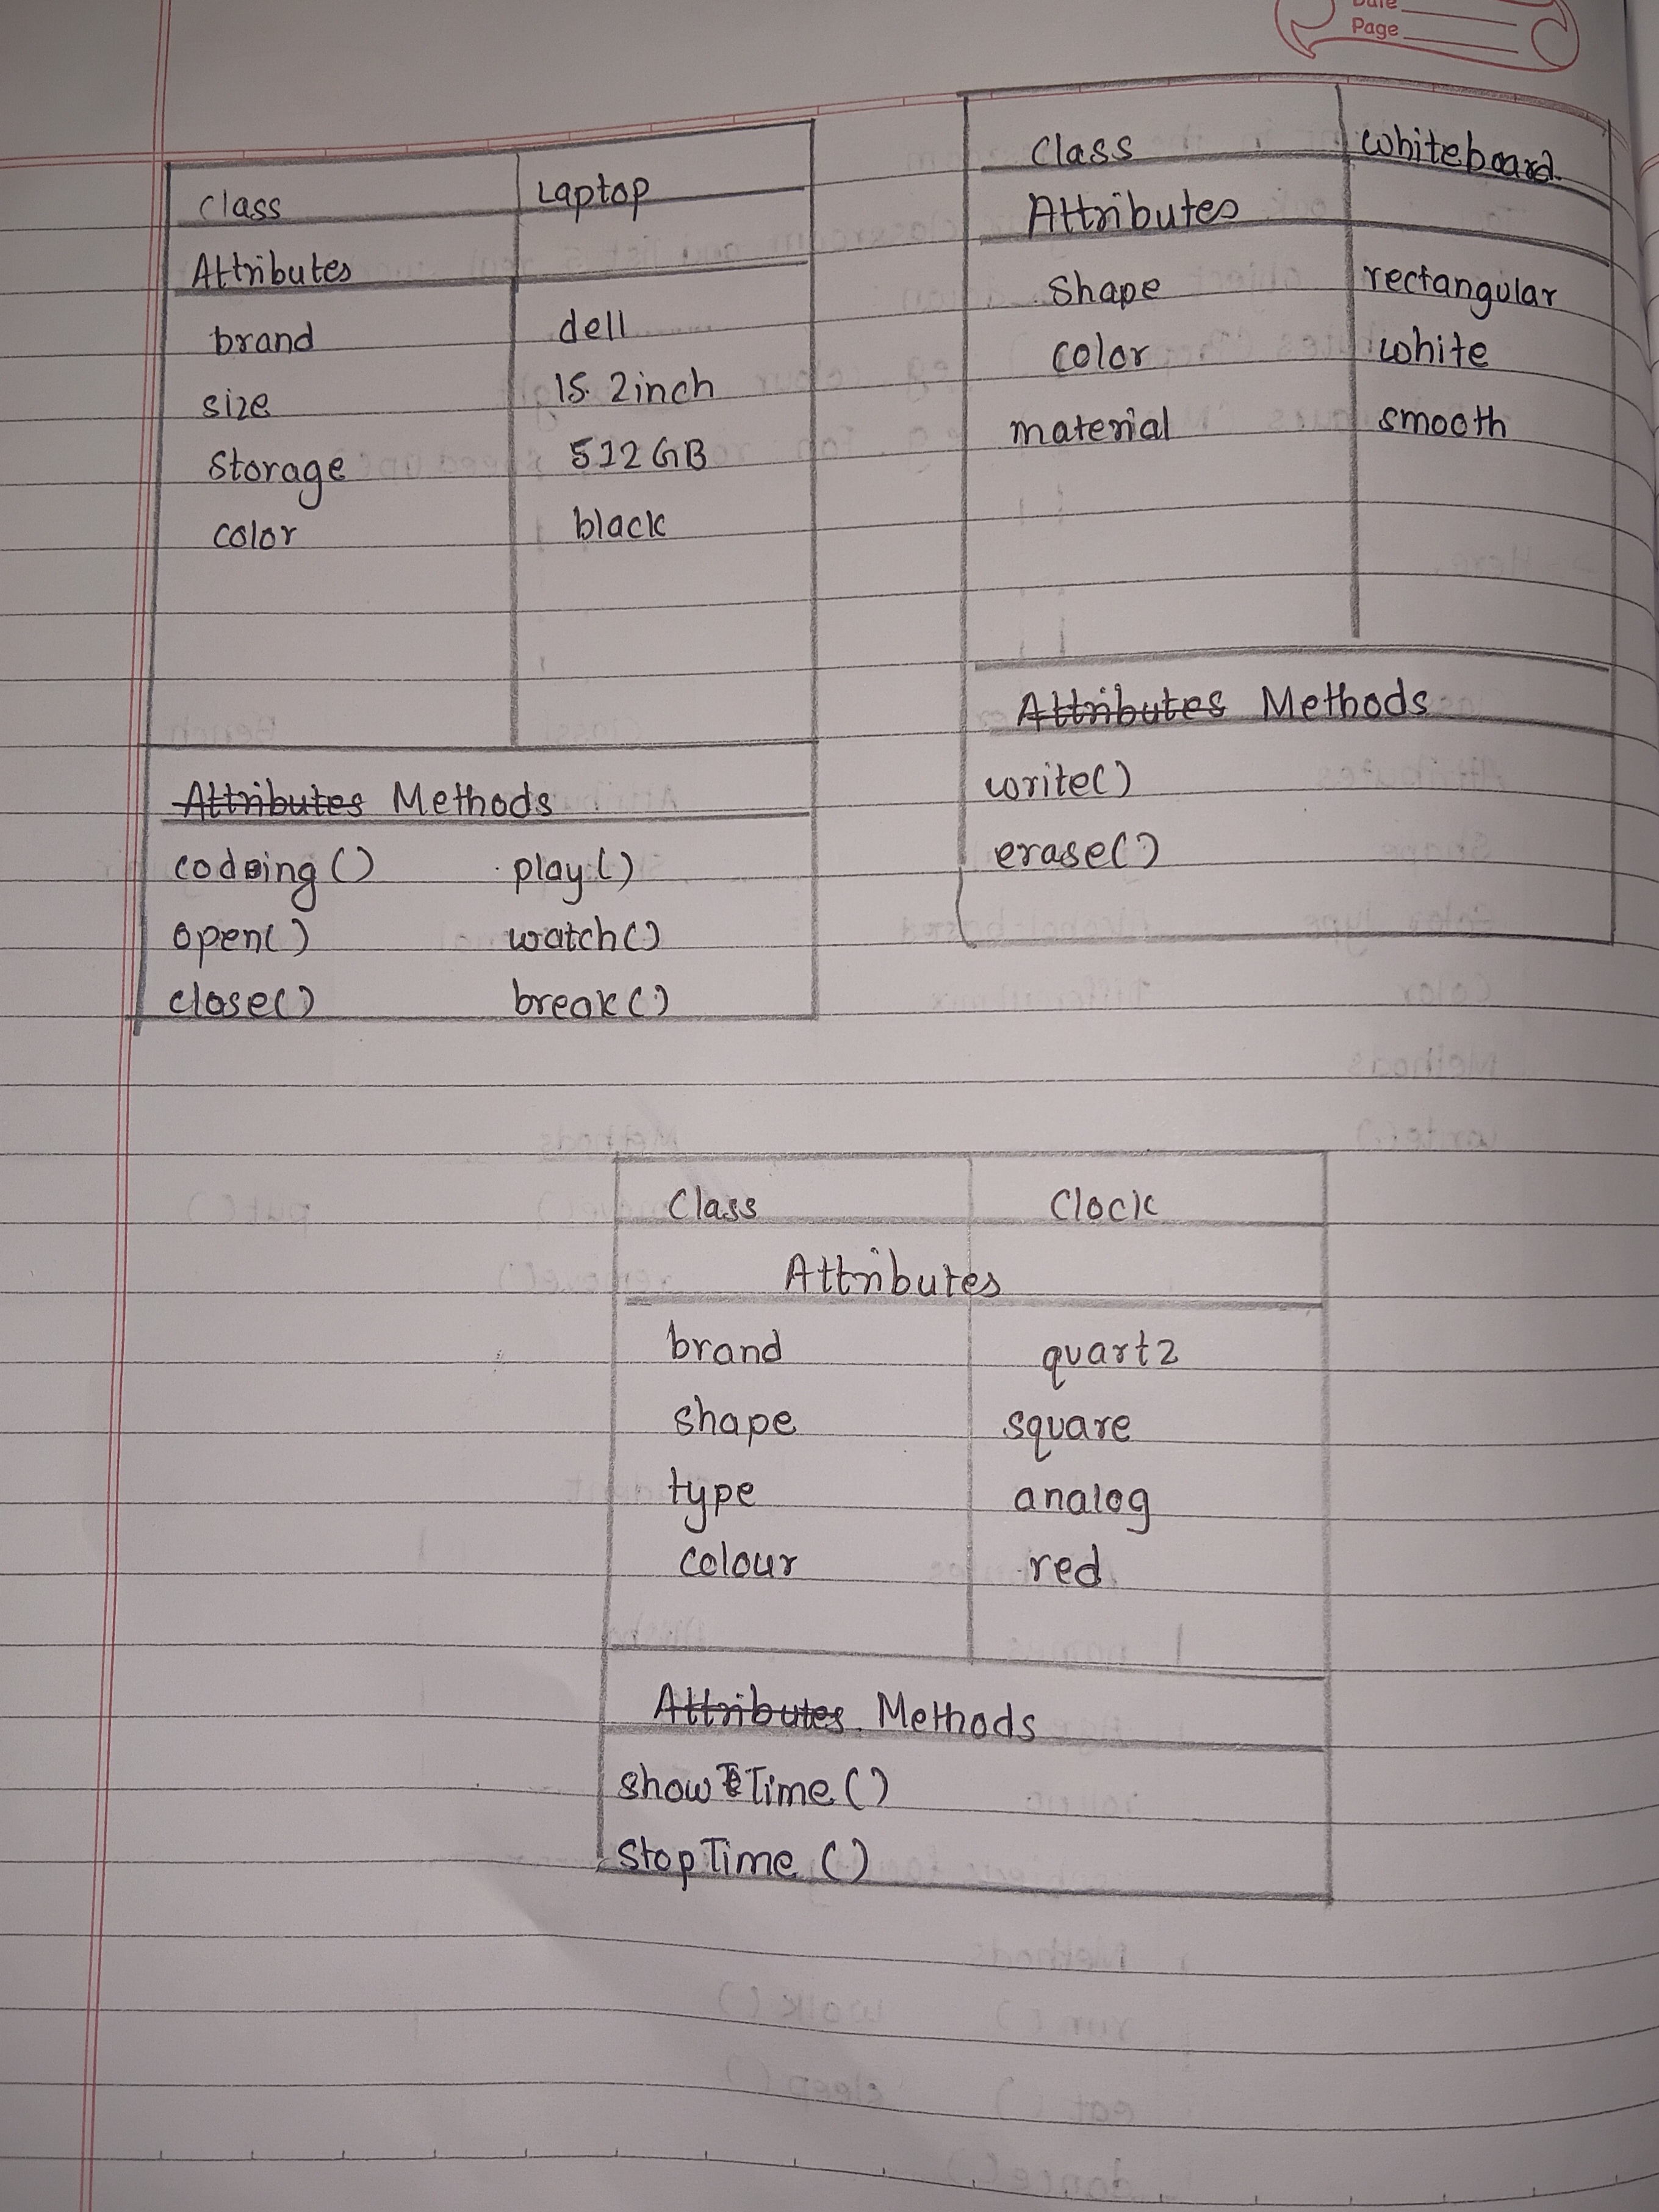 Date
Page
Class Laptop
Attributes
brand dell
size 15.2inch
Storage 512GB
color black
Attributes Methods
codeing() play()
open() watch()
close() break()
Class Whiteboard
Attributes
Shape rectangular
color white
material smooth
Attributes Methods
write()
erase()
Class Clock
Attributes
brand quartz
shape square
type analog
colour red
Attributes Methods
show Time()
Stop Time ()